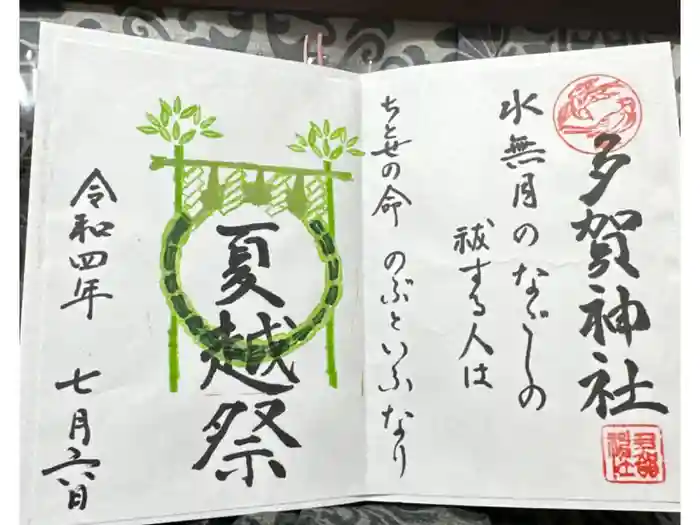 多賀神社
水無月のなごしの
祓する人は
ちとせの命 のぶといふなり
夏越祭
令和四年 七月六日